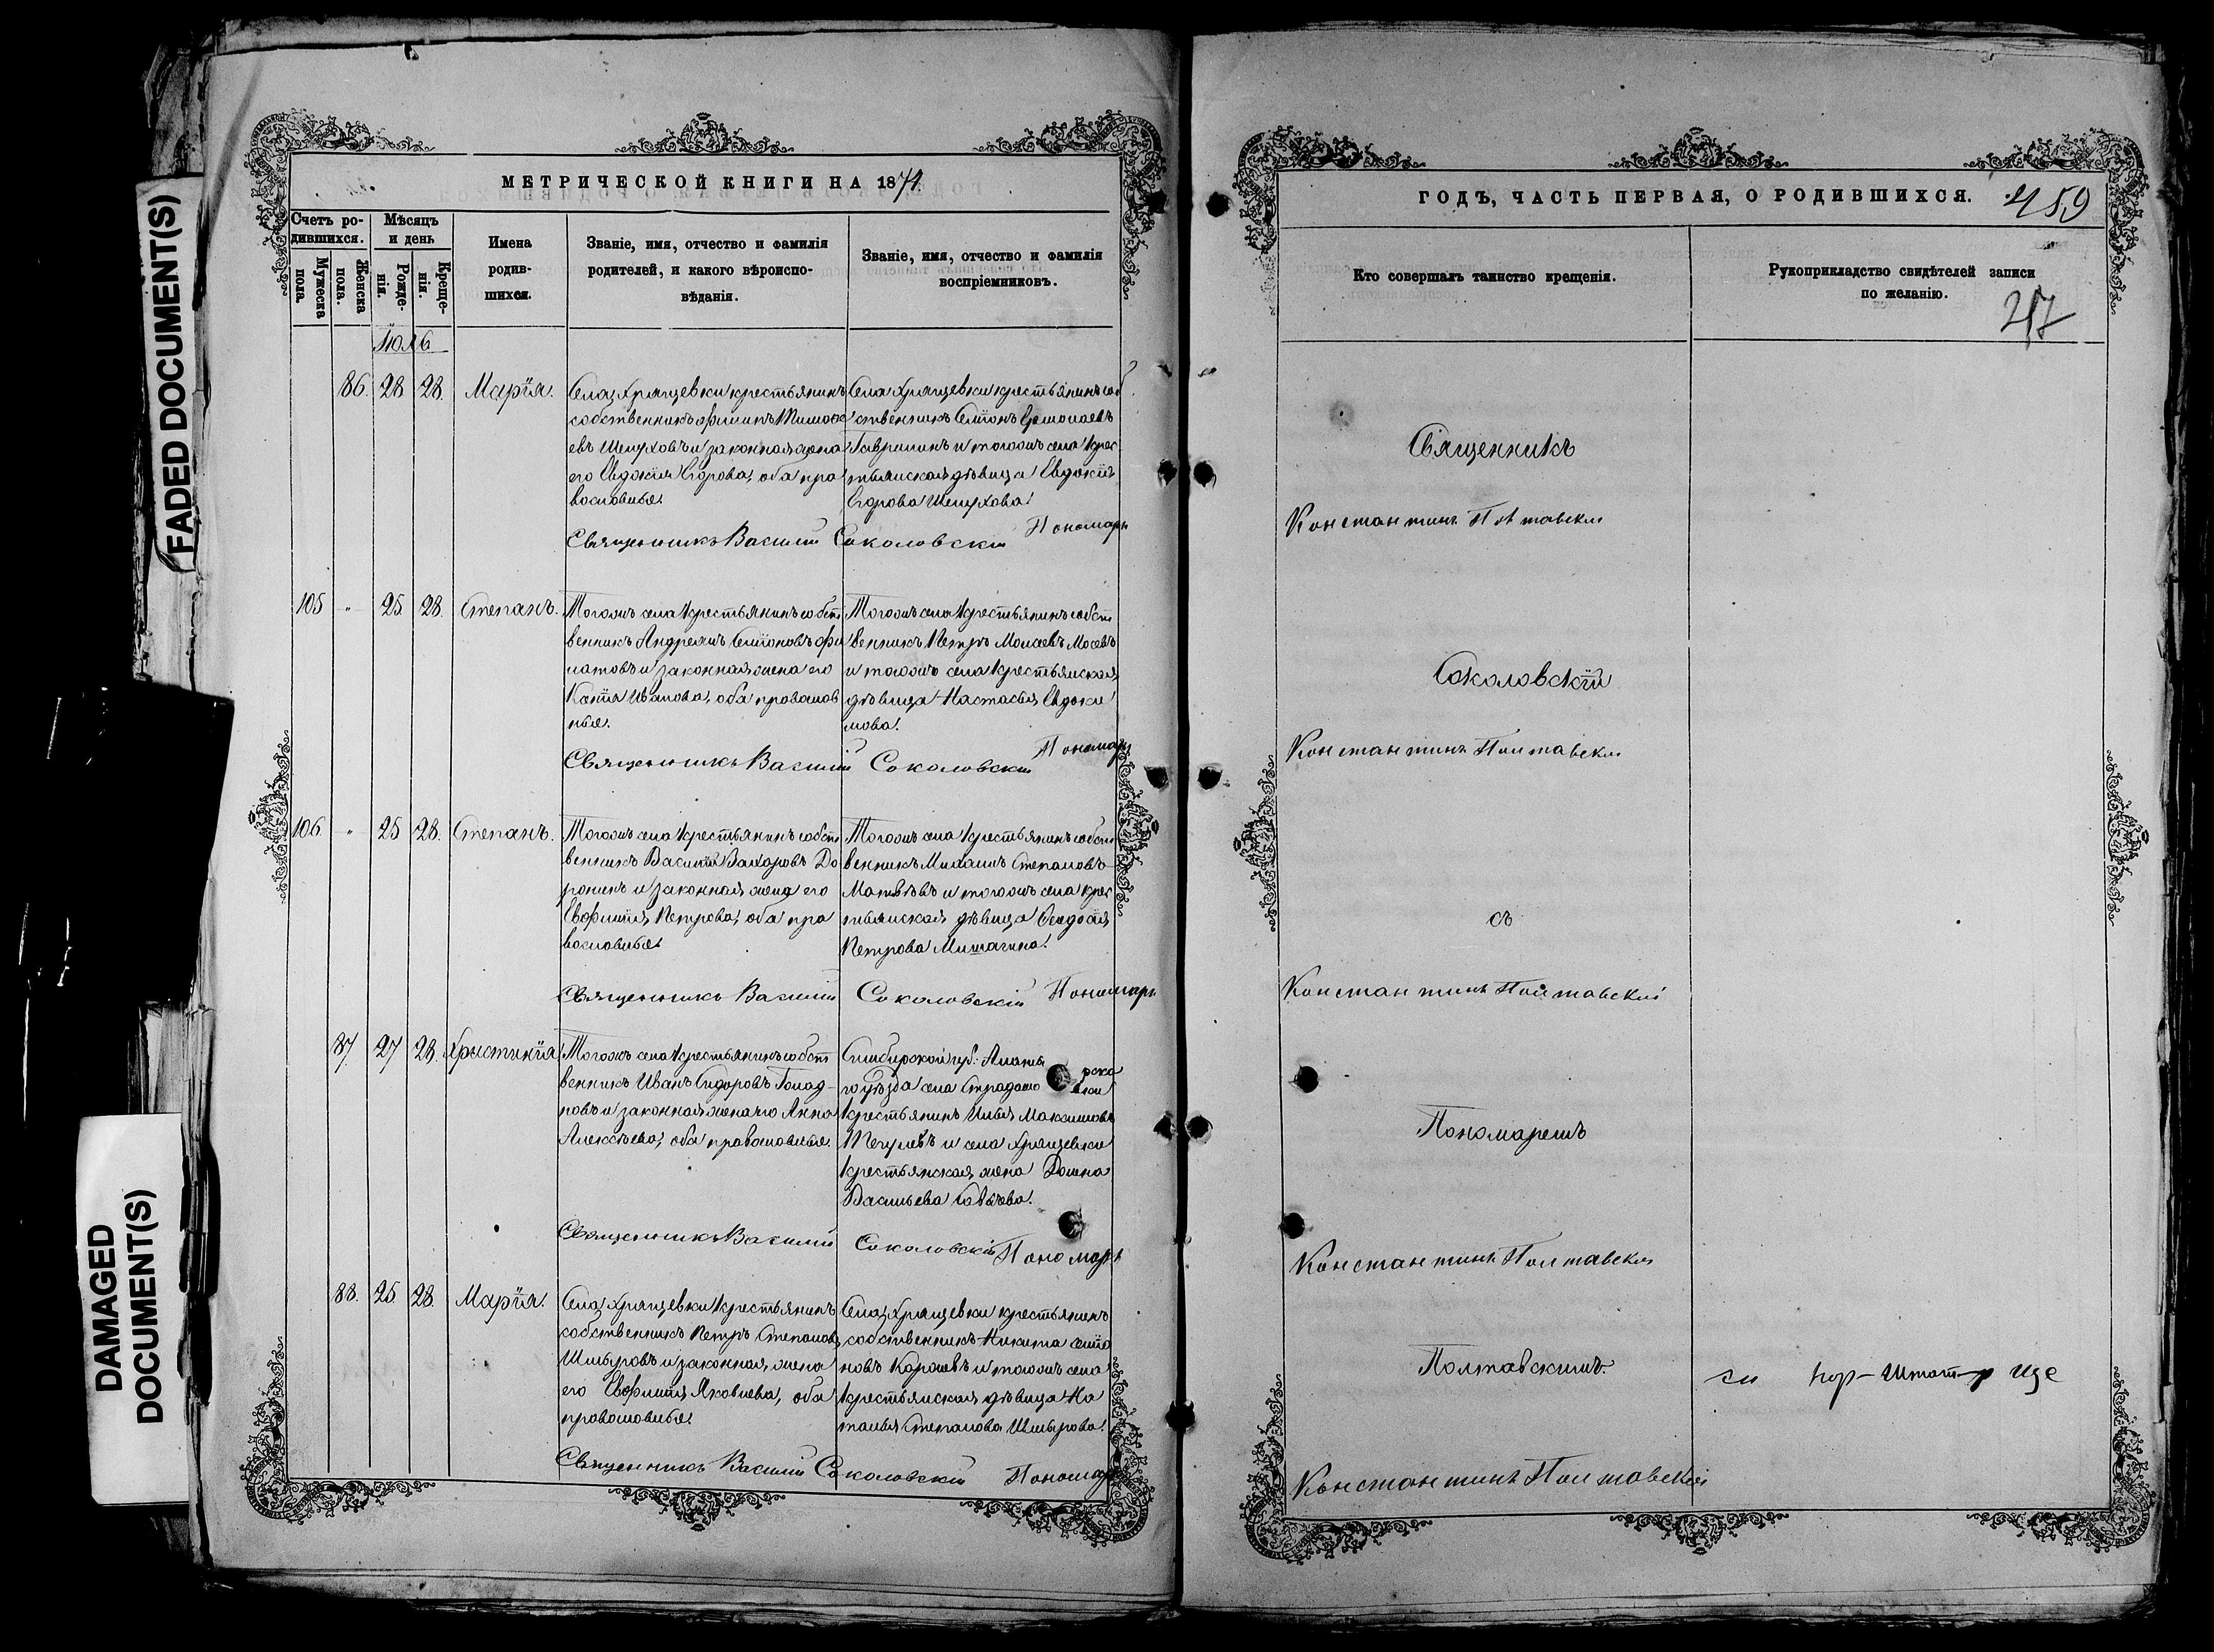 FADED DOCUMENT(S)
DAMAGED
DOCUMENT(S)
МЕТРИЧЕСКОЙ КНИГИ НА 1871
Счетъ ро-
дившихся.
Мужеска
пола.
Женска
пола.
Мѣсяцъ
и день
Рожде-
нія.
Креще-
нія.
Имена
родив-
шихся.
Званіе, имя, отчество и фамилія
родителей, и какого вѣроиспо-
вѣданія.
Званіе, имя, отчество и фамилія
воспріемниковъ.
Іюль
86. 28 28. Марія.
Села Хрящевки крестьянинъ
собственникъ Филипъ Тимофе
евъ Шелуховъ и законная жена
его Евдокія Егорова, оба пра
вославные.
Села Хрящевки крестьянинъ соб
ственникъ Семіонъ
Гаврилинъ и тогожъ села крес
тьянская дѣвица Евдокія
Егорова Шелухова.
Священникъ Василій Соколовскій Пономарь
105 " 25 28. Степанъ.
Тогожъ села крестьянинъ собст
венникъ Андреянъ Семіоновъ Фи
латовъ и законная жена его
Иванова, оба православ
ные.
Тогожъ села крестьянинъ собст
венникъ Петръ
и тогожъ села крестьянская
дѣвица Настасья Евдоки
мова.
Священникъ Василій Соколовскій Пономарь
106. " 25 28. Степанъ.
Тогожъ села крестьянинъ собст
венникъ Василій Захаровъ До
ронинъ и законная жена его
Евфимія Петрова, оба пра
вославные.
Тогожъ села крестьянинъ собст
венникъ Михаилъ Степановъ
Матвѣевъ и тогожъ села крес
тьянская дѣвица Феодосія
Петрова Мишагина.
Священникъ Василій Соколовскій Пономарь
87. 27 28. Христинія
Тогожъ села крестьянинъ собст
венникъ Иванъ Сидоровъ
новъ и законная жена его Анна
Алексѣева, оба православные.
Симбирской губ. Алаты рска
го уѣзда села
крестьянинъ Илья Максимовъ
и села Хрящевки
крестьянская жена Домна
Васильева
Священникъ Василій Соколовскій Пономарь
88. 25. 28. Марія.
Села Хрящевки крестьянинъ
собственникъ Петръ Степановъ
Шмыровъ и законная жена
его Евфимія Яковлева, оба
православные.
Села Хрящевки крестьянинъ
собственникъ Никита Семіо
новъ Караевъ и тогожъ села
крестьянская дѣвица На
талья Степанова Шмырова.
Священникъ Василій Соколовскій Пономарь
ГОДЪ, ЧАСТЬ ПЕРВАЯ, О РОДИВШИХСЯ. 459
Кто совершалъ таинство крещенія.
Рукоприкладство свидѣтелей записи
по желанію.
217
Священникъ
Константинъ Полтавскій
Соколовскій
Константинъ Полтавскій
съ
Константинъ Полтавскій
Пономаремъ
Константинъ Полтавскій
Полтавскимъ.
Константинъ Полтавскій